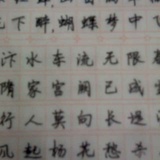 下醉,蝴蝶梦中
汴水东流无限
隋家宫阙已成
行人莫向长堤
风起杨花愁